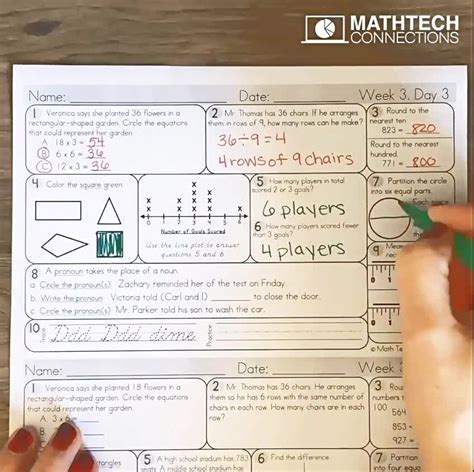 MATHTECH
CONNECTIONS
Name: Date: Week 3, Day 3
1 Veronica says she planted 36 flowers in a
rectangular-shaped garden. Circle the equations
that could represent her garden.
A. 18 x 3 = 54
B. 6 x 6 = 36
C. 12 x 3 = 36
2 Mr. Thomas has 36 chairs. If he arranges
them in rows of 9, how many rows can he make?
36÷9=4
4 rows of 9 chairs
3 Round to the
nearest ten.
823 = 820
Round to the nearest
hundred.
771 = 800
4 Color the square green.
0 1 2 3 4 5 6
Number of Goals Scored
Use the line plot to answer
questions 5 and 6
5 How many players in total
scored 2 or 3 goals?
6 players
6 How many players scored fewer
than 3 goals?
4 players
7 Partition the circle
into six equal parts.
Each piece
8 A pronoun takes the place of a noun.
a. Circle the pronoun(s). Zachary reminded her of the test on Friday.
b. Write the pronoun. Victoria told (Carl and I) to close the door.
c. Circle the pronoun(s). Mr. Parker told his son to wash the car.
9
10 Trace Ddd Ddd dime Practice
© Math Tech
Name: Date: Week 3
1 Veronica says she planted 18 flowers in a
rectangular-shaped garden. Circle the equations
that could represent her garden.
A. 3 x 6 =
2 Mr. Thomas has 36 chairs. He arranges
them so he has 6 rows with the same number of
chairs in each row. How many chairs are in each
row?
3
100
564
5 A high school stadium has 783
6 Find the difference.
7 Partition
into four equal